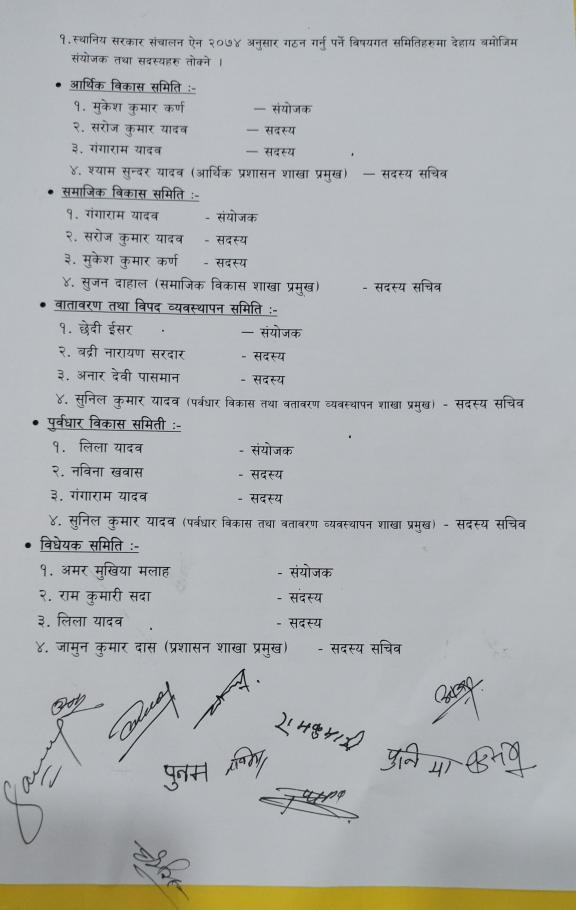 १.स्थानिय सरकार संचालन ऐन २०७४ अनुसार गठन गर्नु पर्ने विषयगत समितिहरुमा देहाय बमोजिम
संयोजक तथा सदस्यहरु तोक्ने ।
• आर्थिक विकास समिति :-
१. मुकेश कुमार कर्ण — संयोजक
२. सरोज कुमार यादव — सदस्य
३. गंगाराम यादव — सदस्य
४. श्याम सुन्दर यादव (आर्थिक प्रशासन शाखा प्रमुख) — सदस्य सचिव
• समाजिक विकास समिति :-
१. गंगाराम यादव - संयोजक
२. सरोज कुमार यादव - सदस्य
३. मुकेश कुमार कर्ण - सदस्य
४. सुजन दाहाल (समाजिक विकास शाखा प्रमुख) - सदस्य सचिव
• वातावरण तथा विपद व्यवस्थापन समिति :-
१. छेदी ईसर — संयोजक
२. बद्री नारायण सरदार - सदस्य
३. अनार देवी पासमान - सदस्य
४. सुनिल कुमार यादव (पर्वधार विकास तथा वतावरण व्यवस्थापन शाखा प्रमुख) - सदस्य सचिव
• पुर्वधार विकास समिती :-
१. लिला यादव - संयोजक
२. नविना खवास - सदस्य
३. गंगाराम यादव - सदस्य
४. सुनिल कुमार यादव (पर्वधार विकास तथा वतावरण व्यवस्थापन शाखा प्रमुख) - सदस्य सचिव
• विधेयक समिति :-
१. अमर मुखिया मलाह - संयोजक
२. राम कुमारी सदा - सदस्य
३. लिला यादव - सदस्य
४. जामुन कुमार दास (प्रशासन शाखा प्रमुख) - सदस्य सचिव
रामकुमारी
पुनम